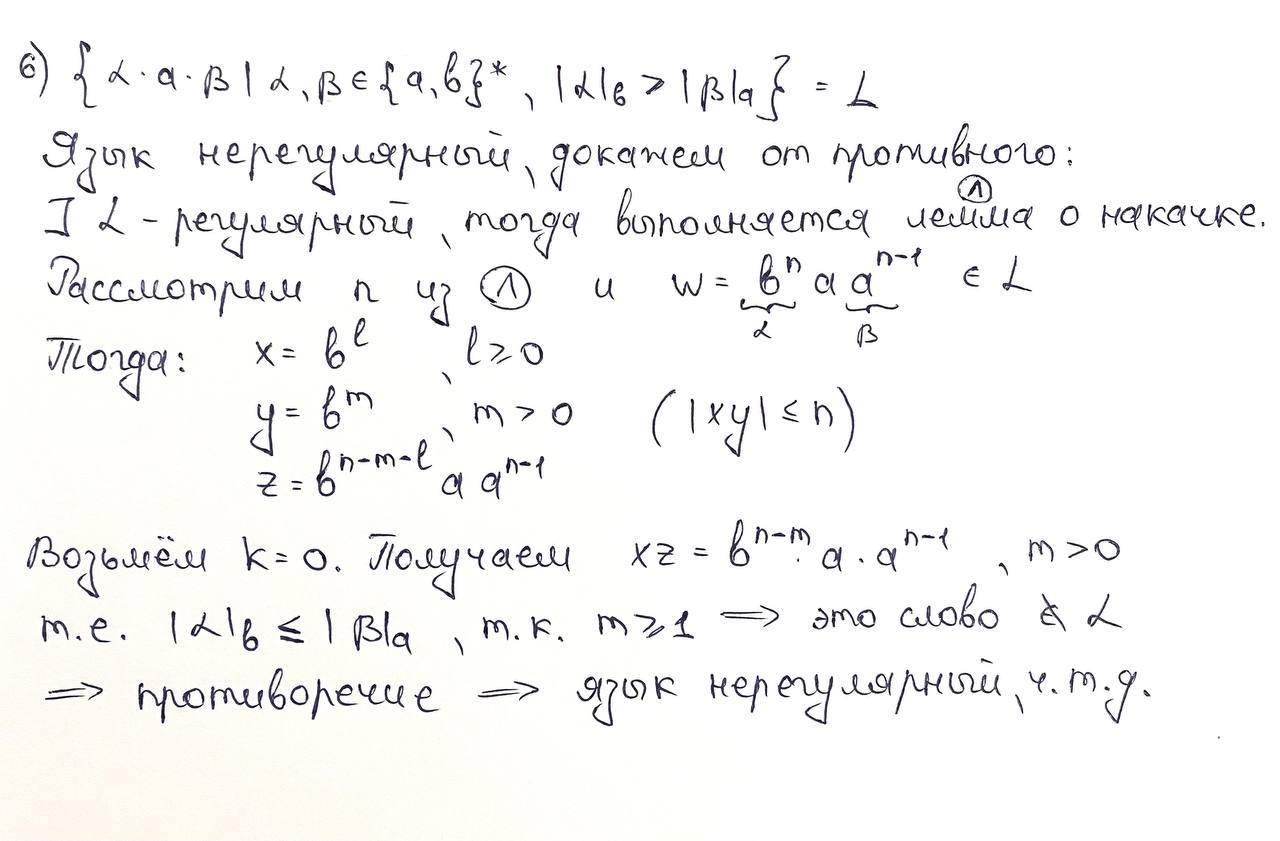 б) { α · a · β | α, β ∈ {a, b}*, |α|b > |β|a } = L
Язык нерегулярный, докажем от противного:
] L - регулярный, тогда выполняется лемма о накачке. Ⓛ
Рассмотрим n из Ⓛ и w = bⁿ a aⁿ⁻¹ ∈ L
α β
Тогда: x = b^l, l ≥ 0
y = b^m, m > 0 (|xy| ≤ n)
z = b^{n-m-l} a aⁿ⁻¹
Возьмём k = 0. Получаем xz = b^{n-m} · a · aⁿ⁻¹, m > 0
т.е. |α|b ≤ |β|a, т.к. m ≥ 1 ⟹ это слово ∉ L
⟹ противоречие ⟹ язык нерегулярный, ч.т.д.